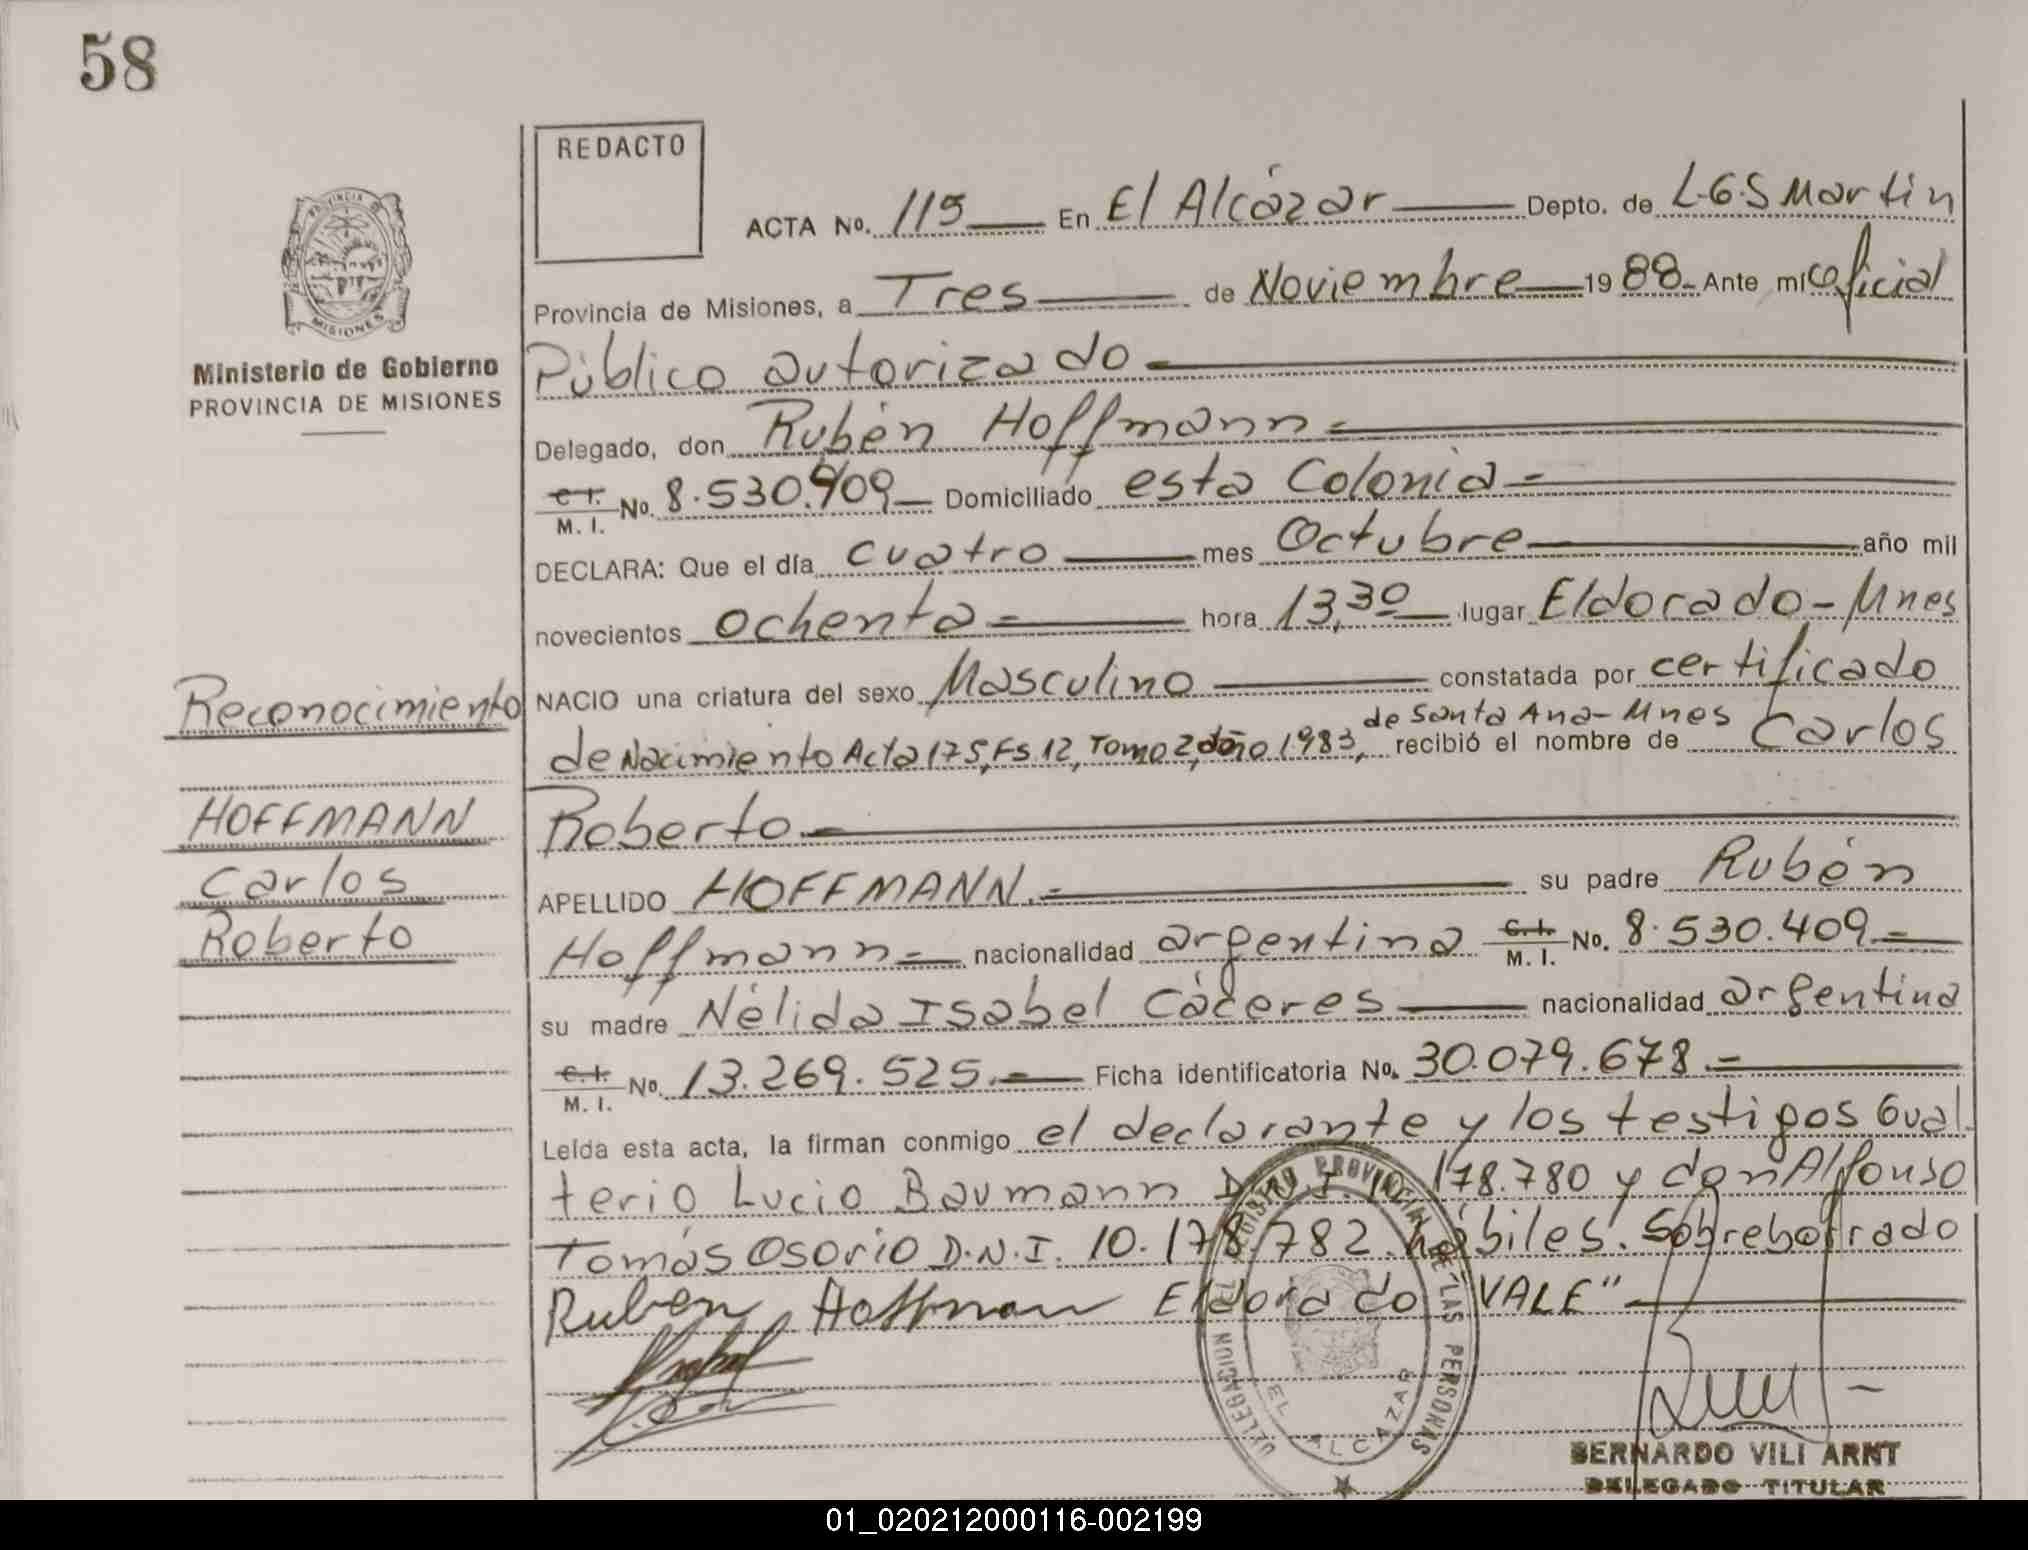 58
REDACTO
ACTA No. 115 En El Alcázar Depto. de L.G.S Martin
Provincia de Misiones, a Tres de Noviembre 1988- Ante mi oficial
Público autorizado
Delegado, don Rubén Hoffmann
C.I. M. I. No. 8.530.409 Domiciliado esta Colonia
DECLARA: Que el día cuatro mes Octubre año mil
novecientos ochenta hora 13,30 lugar Eldorado-Mnes
NACIO una criatura del sexo Masculino constatada por certificado
de Nacimiento Acta 175, Fs 12, Tomo 2, año 1983, de Santa Ana-Mnes recibió el nombre de Carlos
Roberto
APELLIDO HOFFMANN su padre Rubén
Hoffmann nacionalidad argentina C.I. M. I. No. 8.530.409
su madre Nélida Isabel Cáceres nacionalidad argentina
C.I. M. I. No. 13.269.525 Ficha identificatoria No. 30.079.678
Leída esta acta, la firman conmigo el declarante y los testigos Gual
terio Lucio Baumann D.N.I. 178.780 y don Alfonso
Tomás Osorio D.N.I. 10.178.782 hábiles. Sobreborrado
Ruben Hoffman Eldorado "VALE"
PROVINCIA DE MISIONES
Ministerio de Gobierno
PROVINCIA DE MISIONES
Reconocimiento
HOFFMANN
Carlos
Roberto
DELEGACION REGISTRO PROVINCIAL DE "LAS PERSONAS
EL ALCAZAR
BERNARDO VILI ARNT
DELEGADO TITULAR
01_020212000116-002199